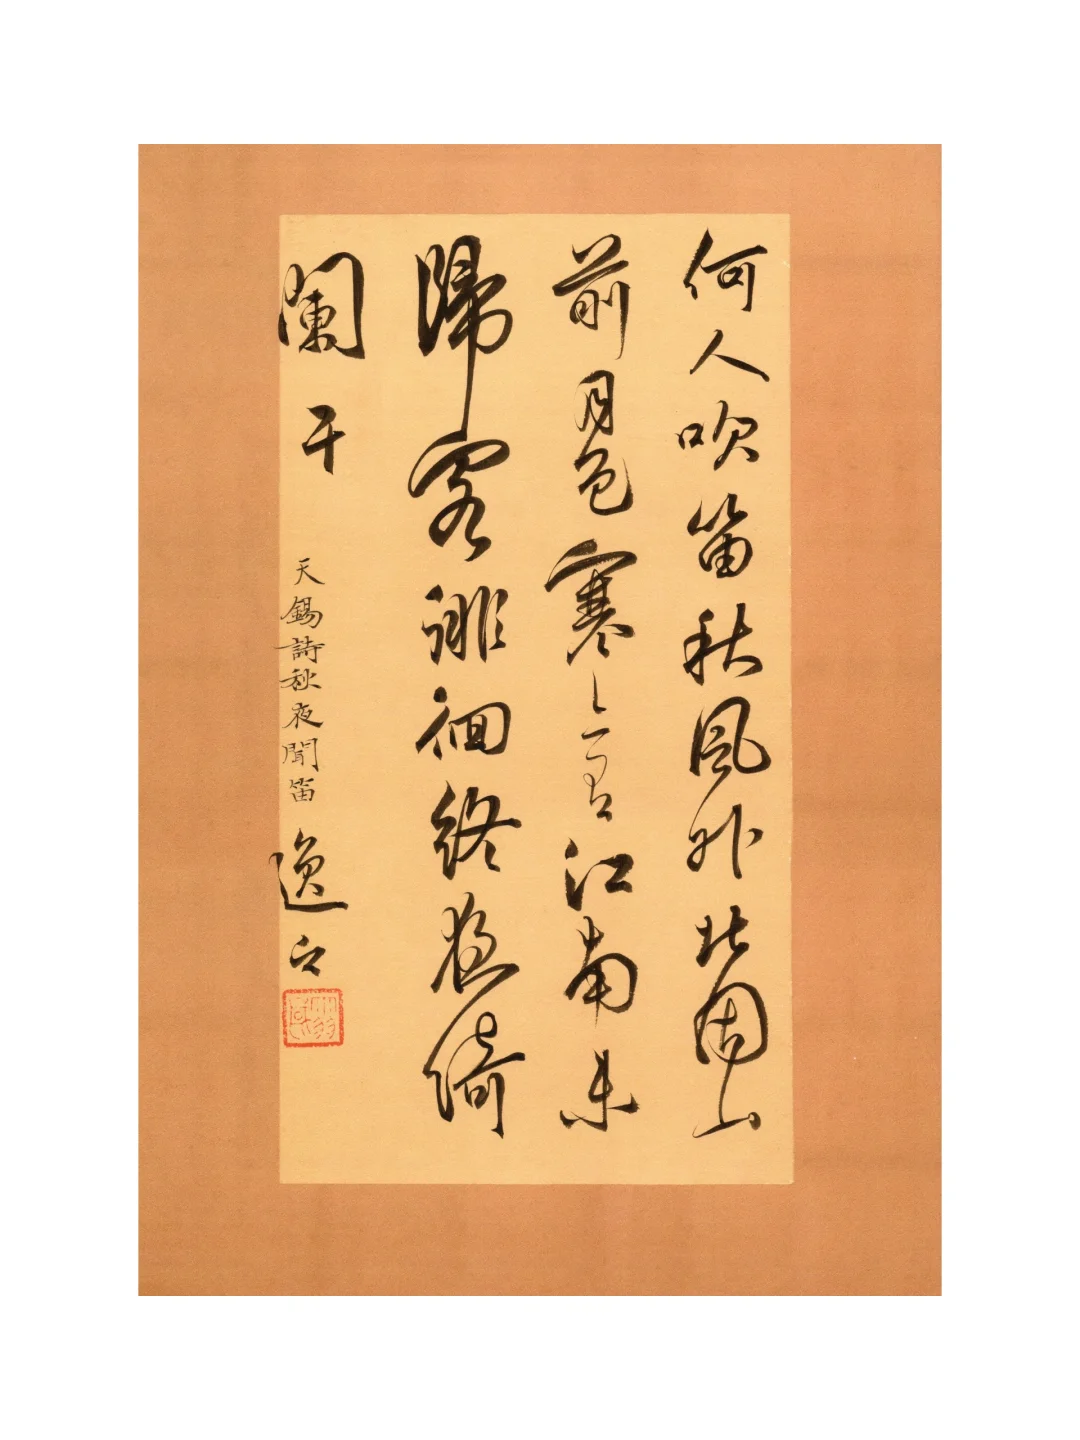 何人吹笛秋風外北固山
前月色寒亦有江南未
歸客徘徊終夜倚
闌干
天錫詩秋夜聞笛